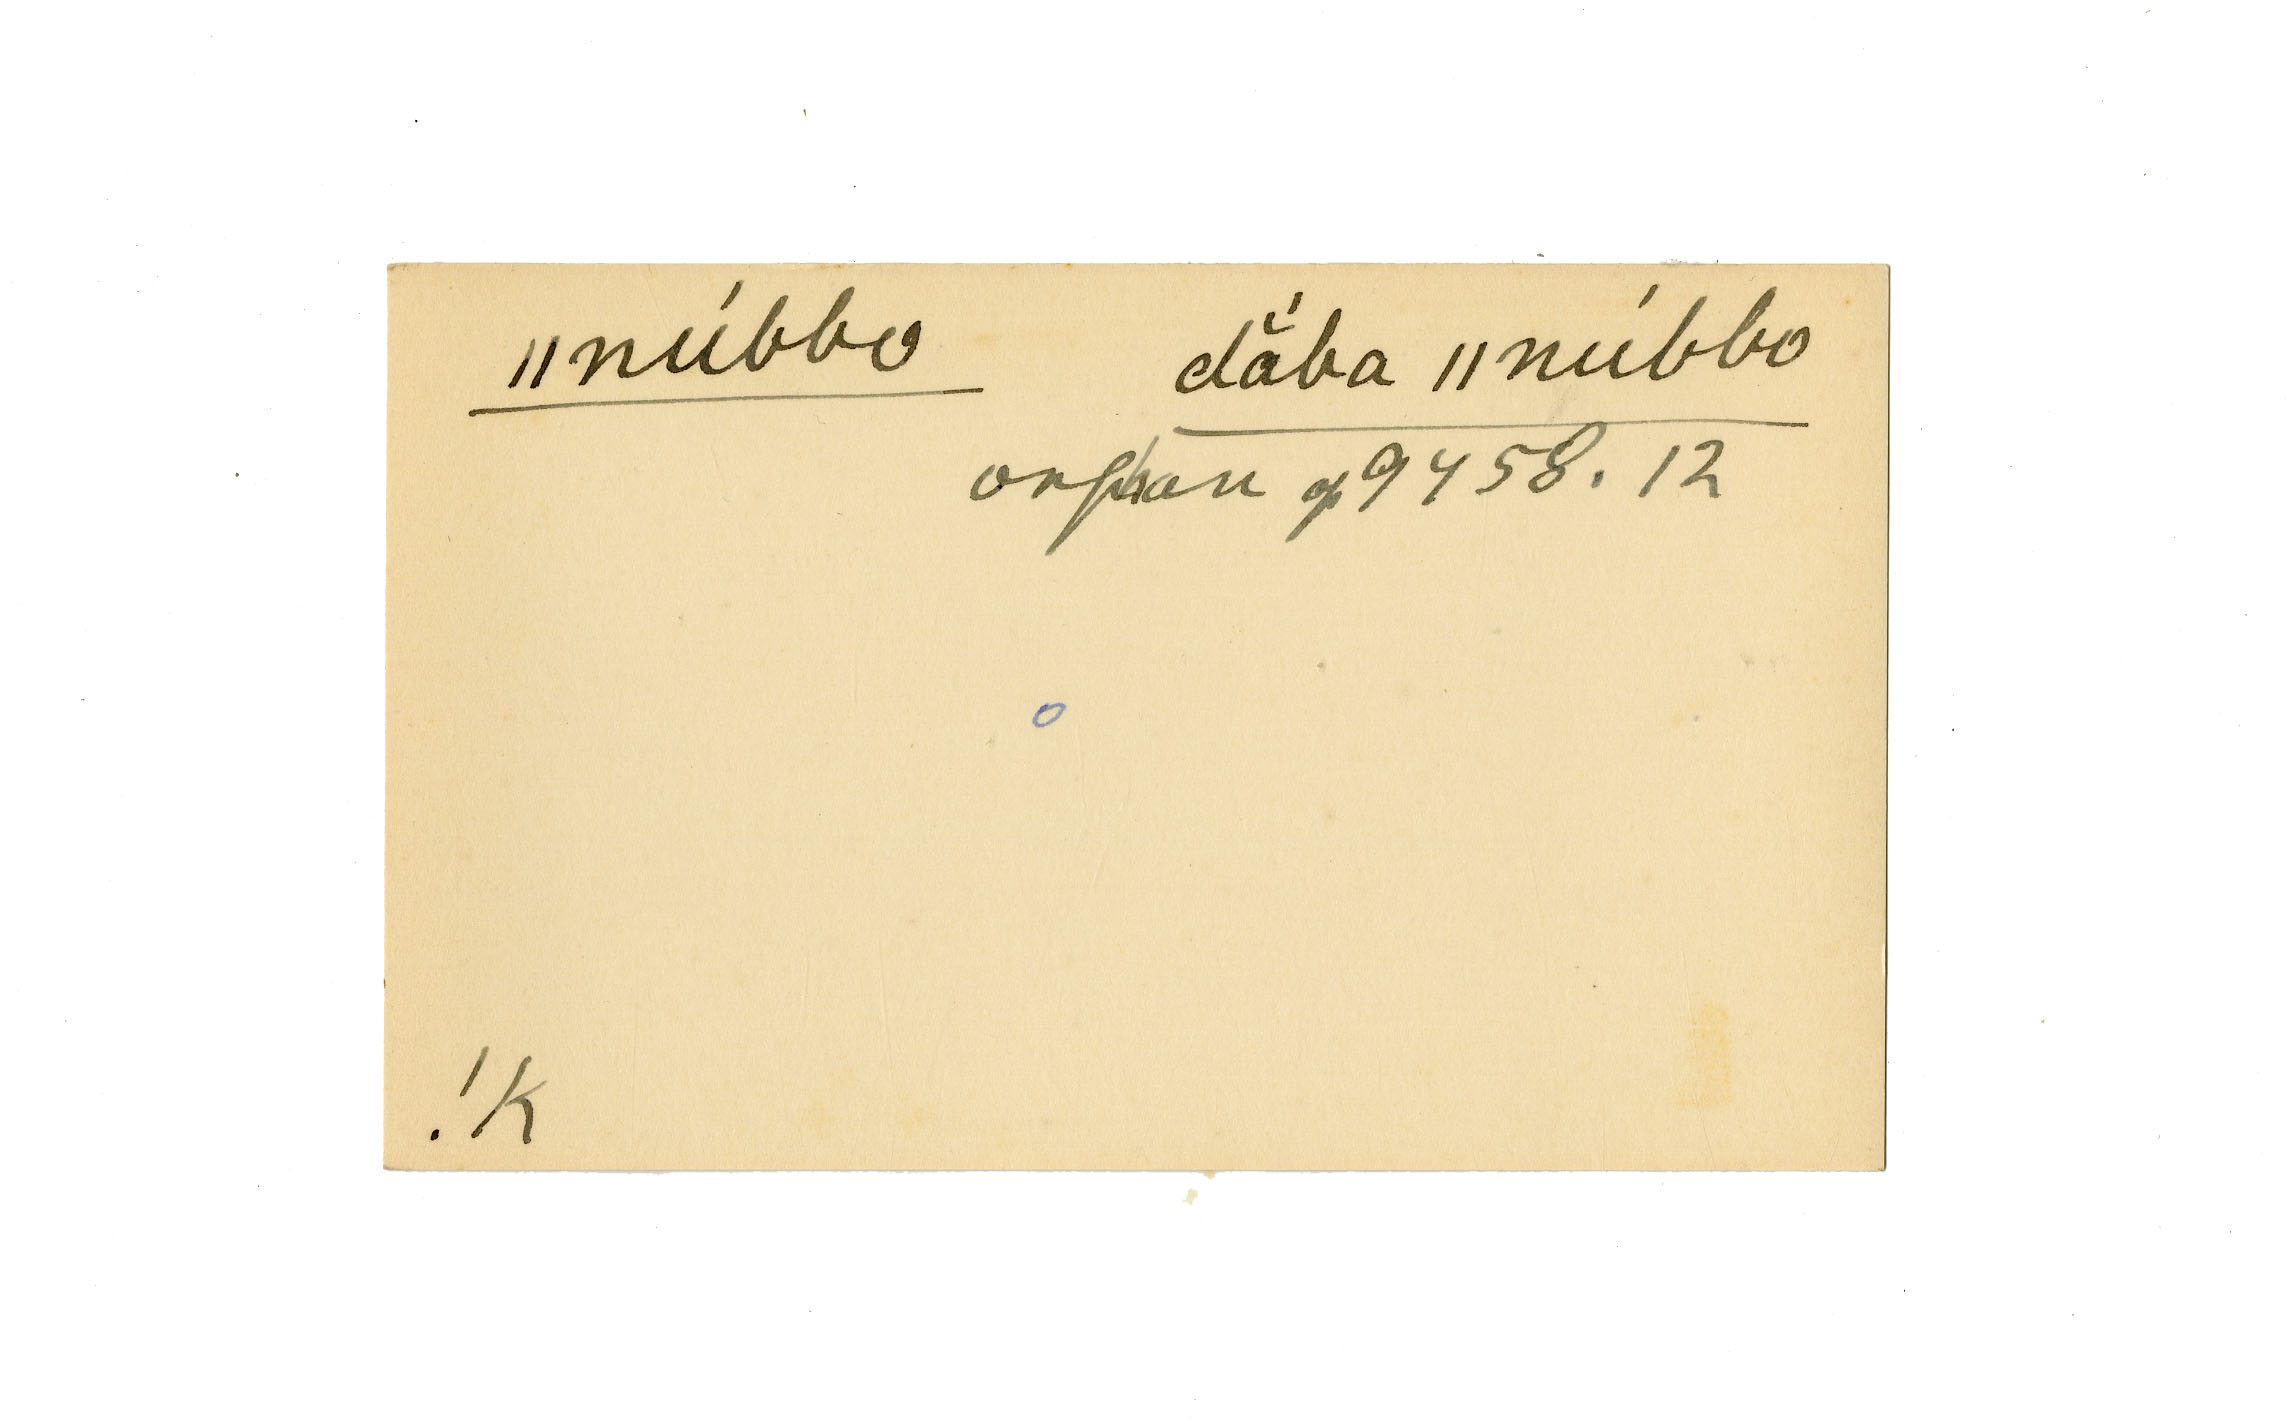 ǁnúbbo dắba ǁnúbbo
orphan p9458.12
!K